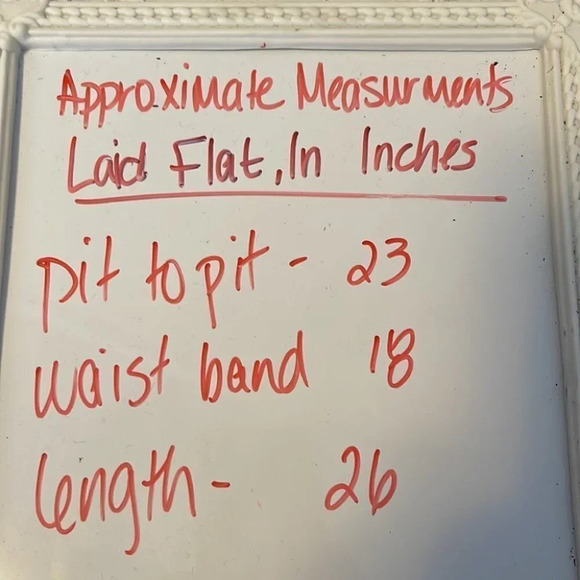 Approximate Measurments
Laid Flat, In Inches
pit to pit - 23
waist band 18
length - 26